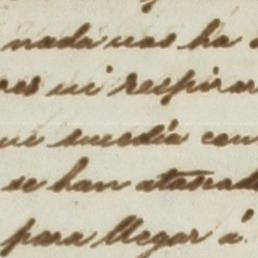 nada nos ha
res ni respirar
un sucedia con
se han atascad
para llegar á